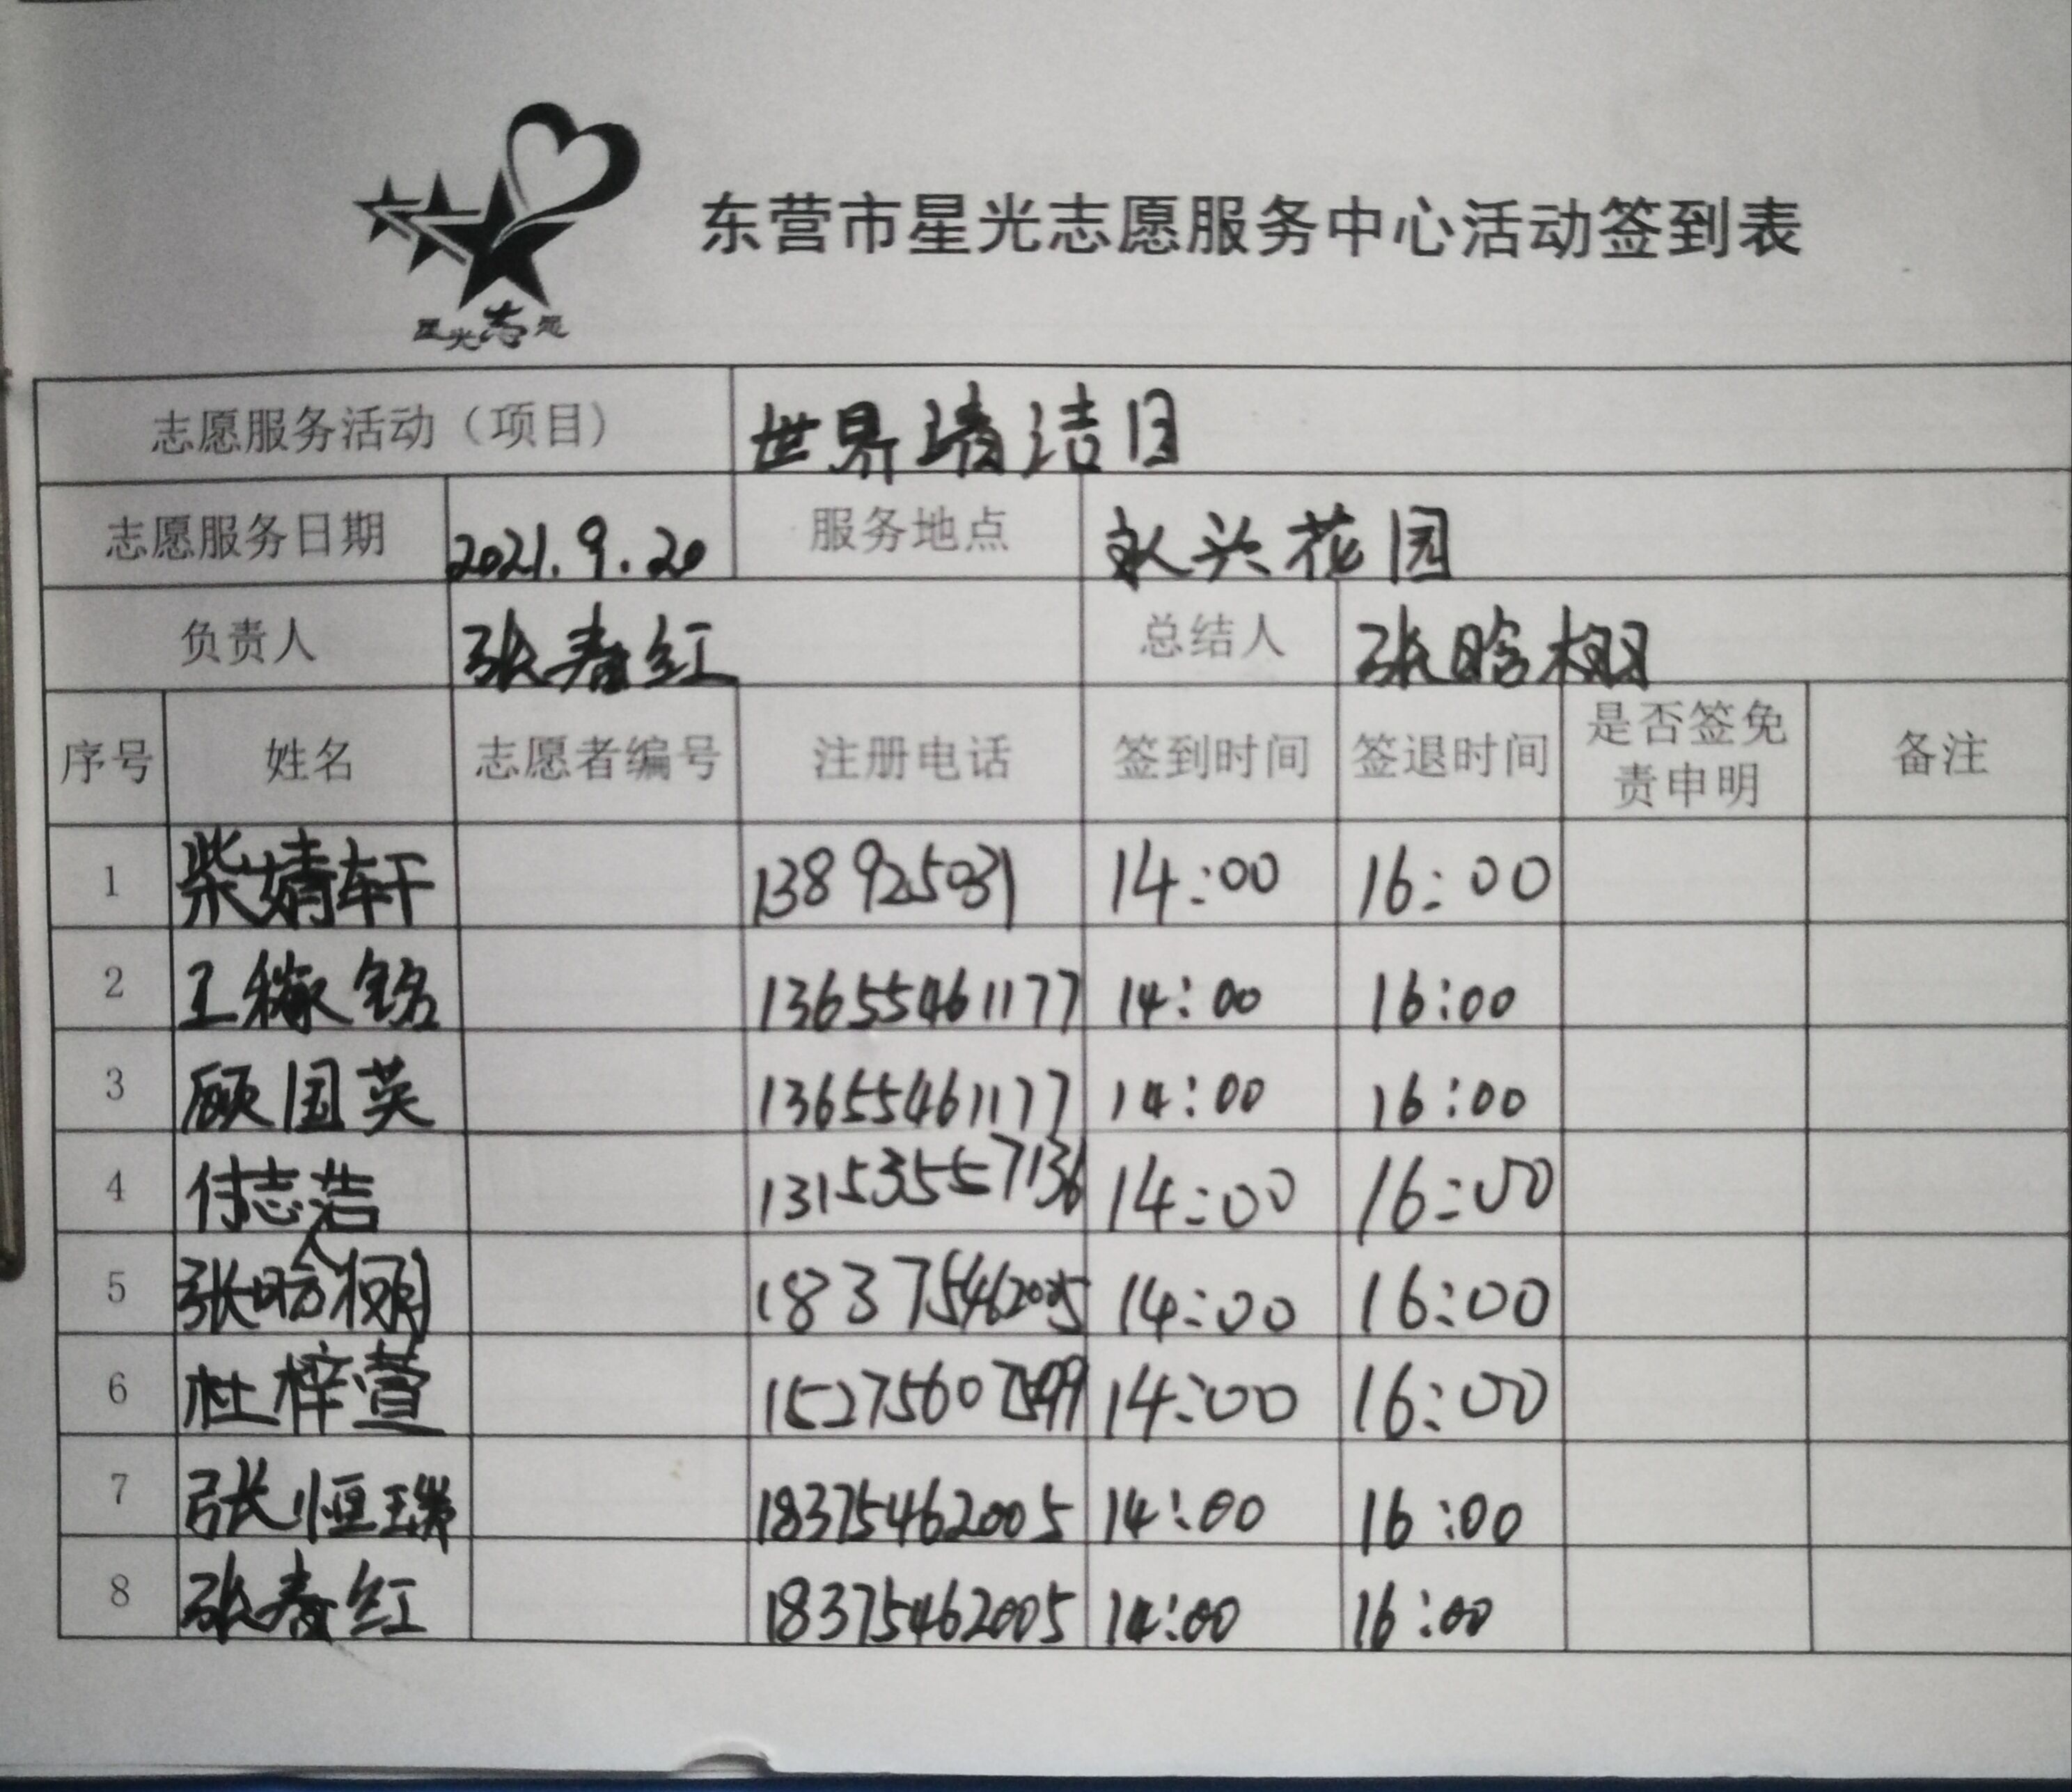 东营市星光志愿服务中心活动签到表
星光志愿
志愿服务活动（项目） 世界清洁日
志愿服务日期 2021.9.20 服务地点 永兴花园
负责人 张春红 总结人 张晗棚
序号 姓名 志愿者编号 注册电话 签到时间 签退时间 是否签免责申明 备注
1 柴婧轩 14:00 16:00
2 王稼铭 13655461177 14:00 16:00
3 顾国英 13655461177 14:00 16:00
4 付志浩 14:00 16:00
5 张晗棚 18375462005 14:00 16:00
6 杜梓萱 14:00 16:00
7 张恒瑞 18375462005 14:00 16:00
8 张春红 18375462005 14:00 16:00